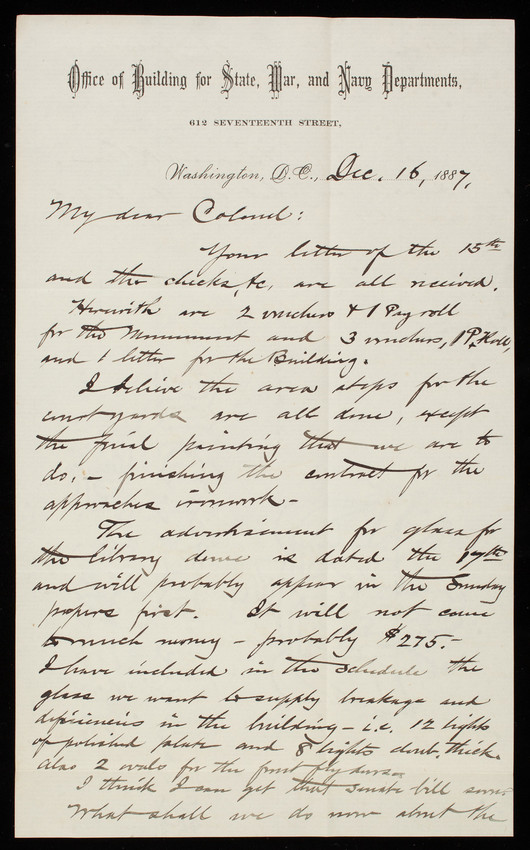 Office of Building for State, War, and Navy Departments,
612 SEVENTEENTH STREET,
Washington, D.C., Dec. 16, 1887,
My dear Colonel:
Your letter of the 15th
and the checks, &c, are all received.
Herewith are 2 vouchers & 1 Pay roll
for the Monument and 3 vouchers, 1 P. Roll,
and 1 letter for the Building.
I believe the area steps for the
court yards are all done, except
the final painting that we are to
do, – finishing the contract for the
approaches ironwork –
The advertisement for glass for
the library dome is dated the 17th
and will probably appear in the Sunday
papers first. It will not cause
to much money – probably $275.–
I have included in the schedule the
glass we want to supply breakage and
deficiencies in the building – i.e. 12 lights
of polished plate and 8 lights doub. thick.
Also 2 ovals for the front fly doors
I think I can get that Senate bill
What shall we do now about the